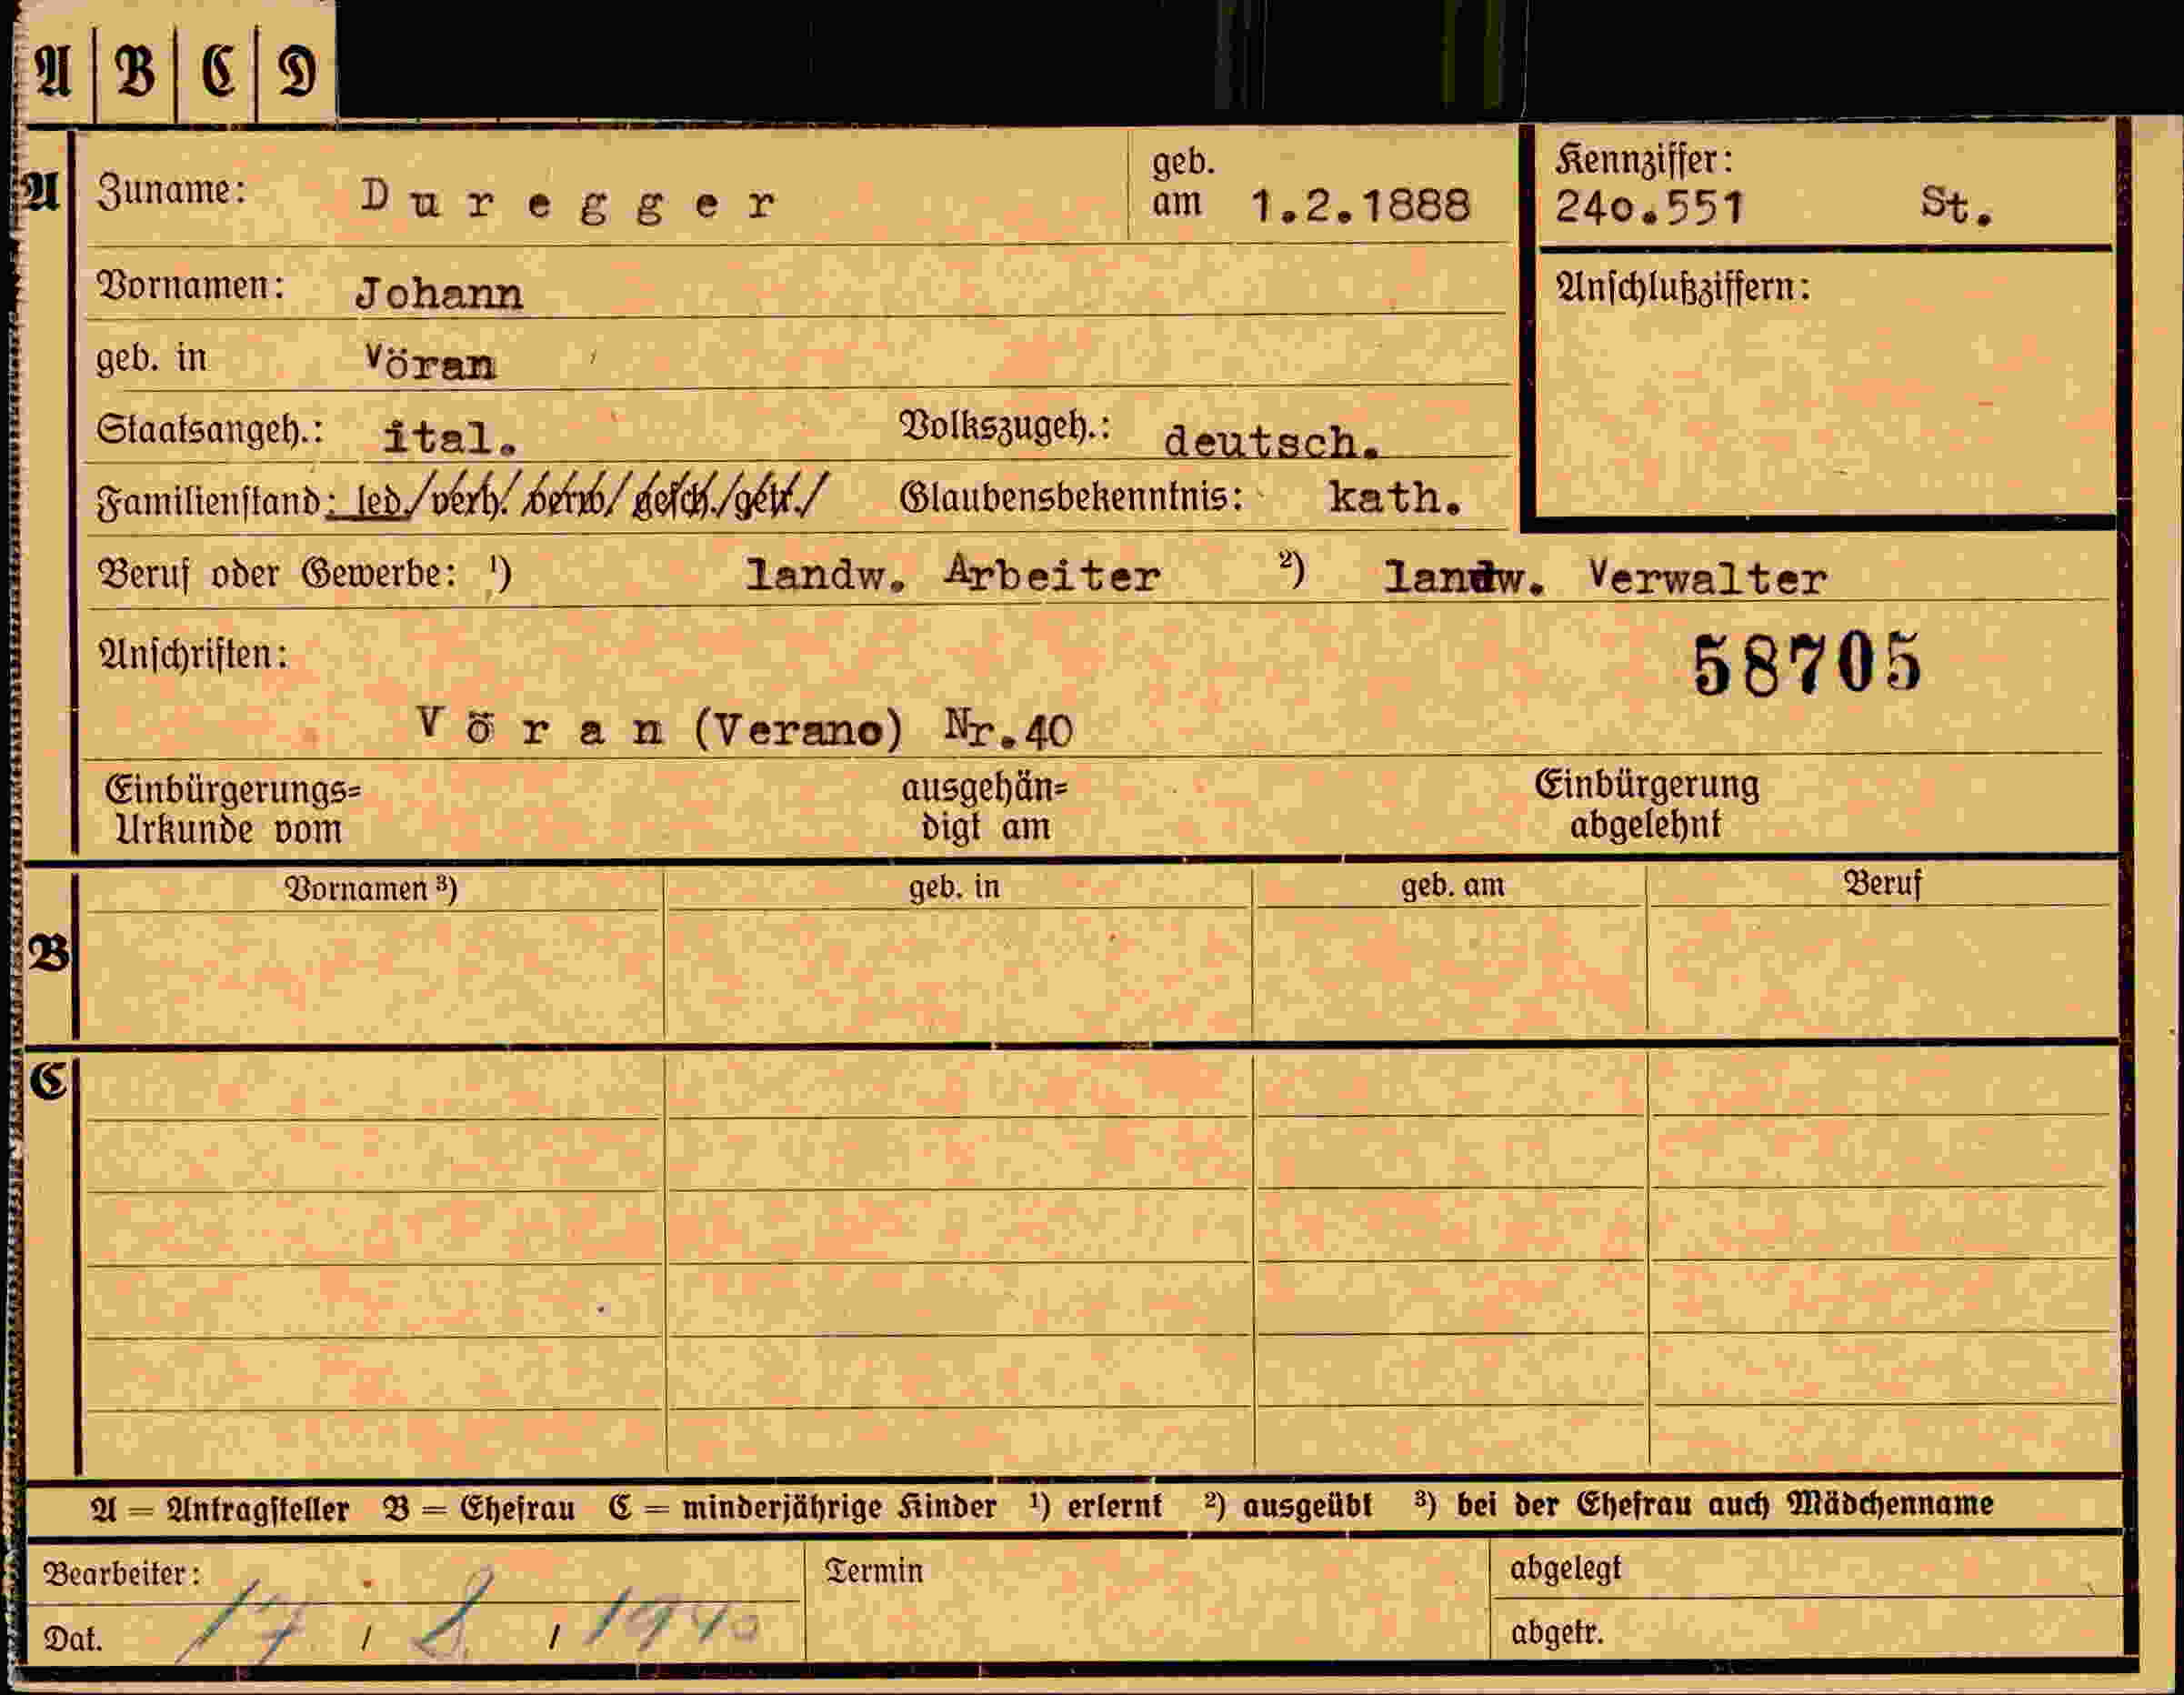 A | B | C | D
A Zuname: Duregger geb. am 1.2.1888 Kennziffer: 240.551 St.
Vornamen: Johann Anschlußziffern:
geb. in Vöran
Staatsangeh.: ital. Volkszugeh.: deutsch.
Familienstand: led./verh./verw./gesch./getr./ Glaubensbekenntnis: kath.
Beruf oder Gewerbe: ¹) landw. Arbeiter ²) landw. Verwalter
Anschriften: 58705
Vöran (Verano) Nr.40
Einbürgerungs= ausgehän= Einbürgerung
Urkunde vom digt am abgelehnt
Vornamen ³) geb. in geb. am Beruf
B
C
A = Antragsteller B = Ehefrau C = minderjährige Kinder ¹) erlernt ²) ausgeübt ³) bei der Ehefrau auch Mädchenname
Bearbeiter: Termin abgelegt
Dat. 17 / 8 / 1940 abgetr.